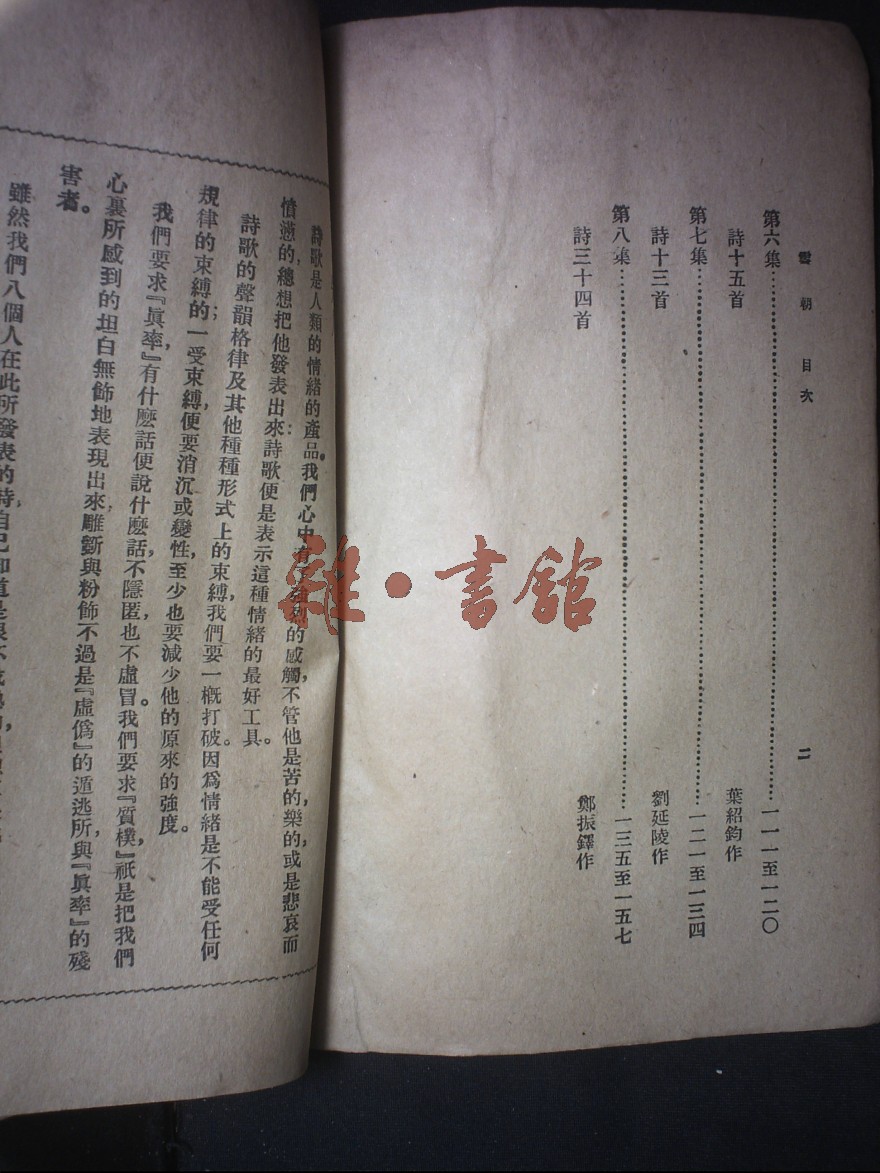 雪朝 目次 二
第六集……一一一至一二〇
詩十五首 葉紹鈞作
第七集……一二一至一三四
詩十三首 劉延陵作
第八集……一三五至一五七
詩三十四首 鄭振鐸作
詩歌是人類的情緒的產品。我們心中有了強烈的感觸，不管他是苦的，樂的，或是悲哀而
憤懣的，總想把他發表出來：詩歌便是表示這種情緒的最好工具。
詩歌的聲韻格律及其他種種形式上的束縛，我們要一概打破。因爲情緒是不能受任何
規律的束縛的；一受束縛，便要消沉或變性，至少也要減少他的原來的強度。
我們要求『眞率』，有什麽話便說什麽話，不隱匿，也不虛冒。我們要求『質樸』，祇是把我們
心裏所感到的坦白無飾地表現出來，雕斲與粉飾不過是『虛僞』的遁逃所，與『眞率』的殘
害者。
雖然我們八個人在此所發表的詩，自己知道是很不成熟的，
雜·書館